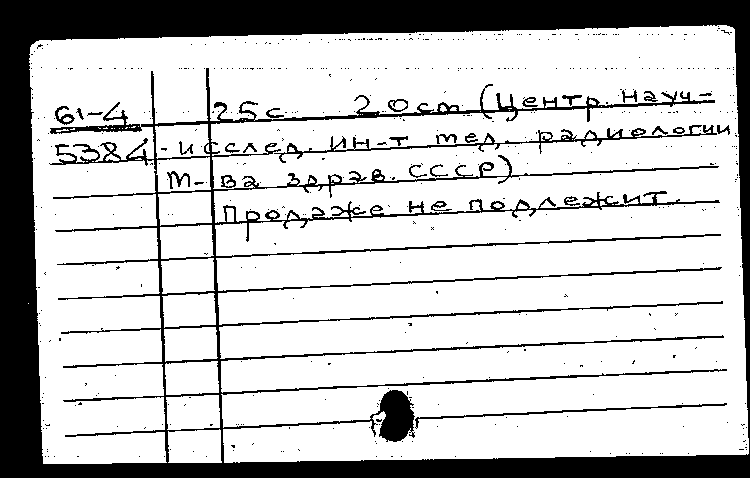 61-4 25с 20см (Центр. науч-
5384 -исслед. ин-т мед. радиологии
М-ва здрав. СССР)
Продаже не подлежит.